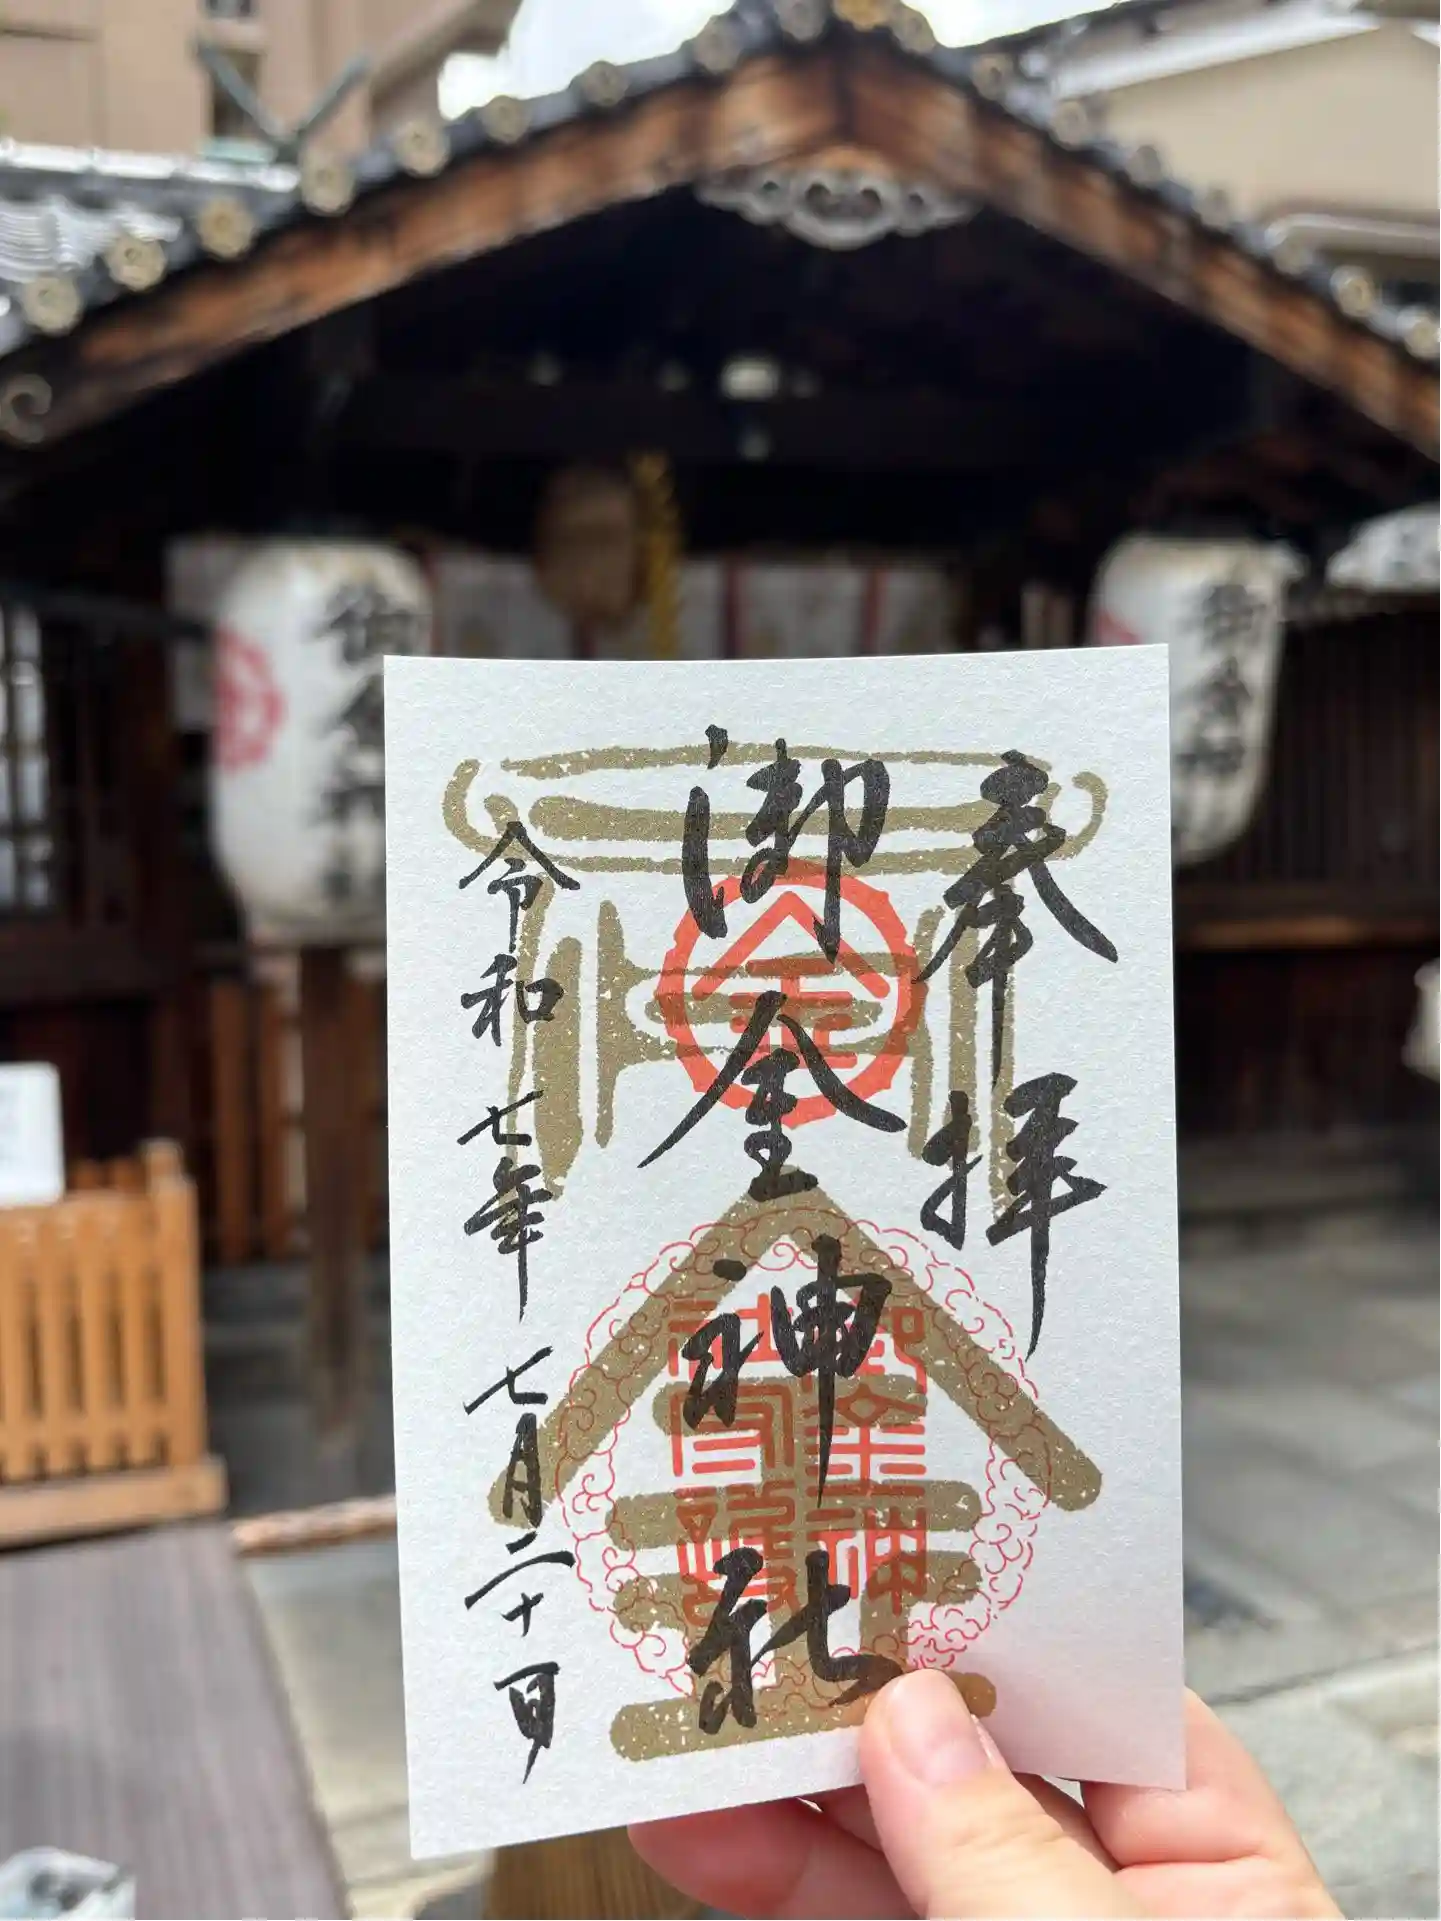 奉拝
御金神社
令和七年七月二十日
金
御金神
社
御金神